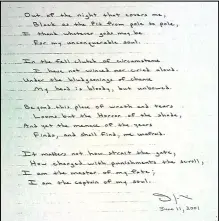 Out of the night that covers me,
Black as the Pit from pole to pole,
I thank whatever gods may be
For my unconquerable soul.
In the fell clutch of circumstance
I have not winced nor cried aloud.
Under the bludgeonings of chance
My head is bloody, but unbowed.
Beyond this place of wrath and tears
Looms but the Horror of the shade,
And yet the menace of the years
Finds, and shall find, me unafraid.
It matters not how strait the gate,
How charged with punishments the scroll,
I am the master of my fate;
I am the captain of my soul.
June 11, 2001